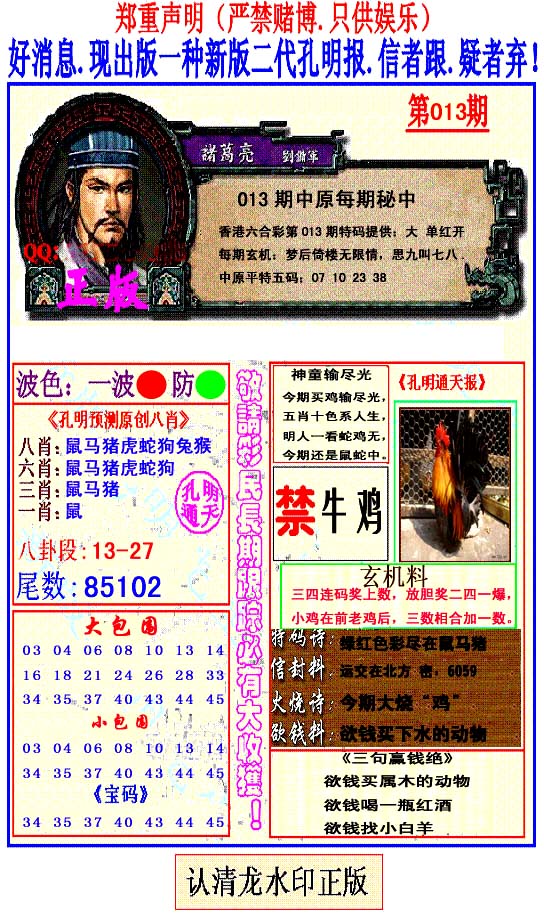 郑重声明（严禁赌博.只供娱乐）
好消息.现出版一种新版二代孔明报.信者跟.疑者弃！
第013期
諸葛亮 劉備軍
013 期中原每期秘中
香港六合彩第 013 期特码提供：大 单红开
每期玄机：梦后倚楼无限情，思九叫七八．
中原平特五码：07 10 23 38
QQ:
正版
波色：一波 防
《孔明预测原创八肖》
八肖：鼠马猪虎蛇狗兔猴
六肖：鼠马猪虎蛇狗
三肖：鼠马猪
一肖：鼠
孔明
通天
八卦段：13-27
尾数：85102
大包围
03 04 06 08 10 13 14
16 18 21 24 26 28 33
34 35 37 40 43 44 45
小包围
03 04 06 08 10 13 14
34 35 37 40 43 44 45
《宝码》
34 35 37 40 43 44 45
敬請彩民長期跟踪必有大收獲！
神童输尽光
今期买鸡输尽光，
五肖十色系人生，
明人一看蛇鸡无，
今期还是鼠蛇中。
《孔明通天报》
禁牛鸡
玄机料
三四连码奖上数，放胆奖二四一爆，
小鸡在前老鸡后，三数相合加一数。
特码诗：绿红色彩尽在鼠马猪
信封料：运交在北方 密．6059
火烧诗：今期大烧“鸡”
欲钱料：欲钱买下水的动物
《三句赢钱绝》
欲钱买属木的动物
欲钱喝一瓶红酒
欲钱找小白羊
认清龙水印正版